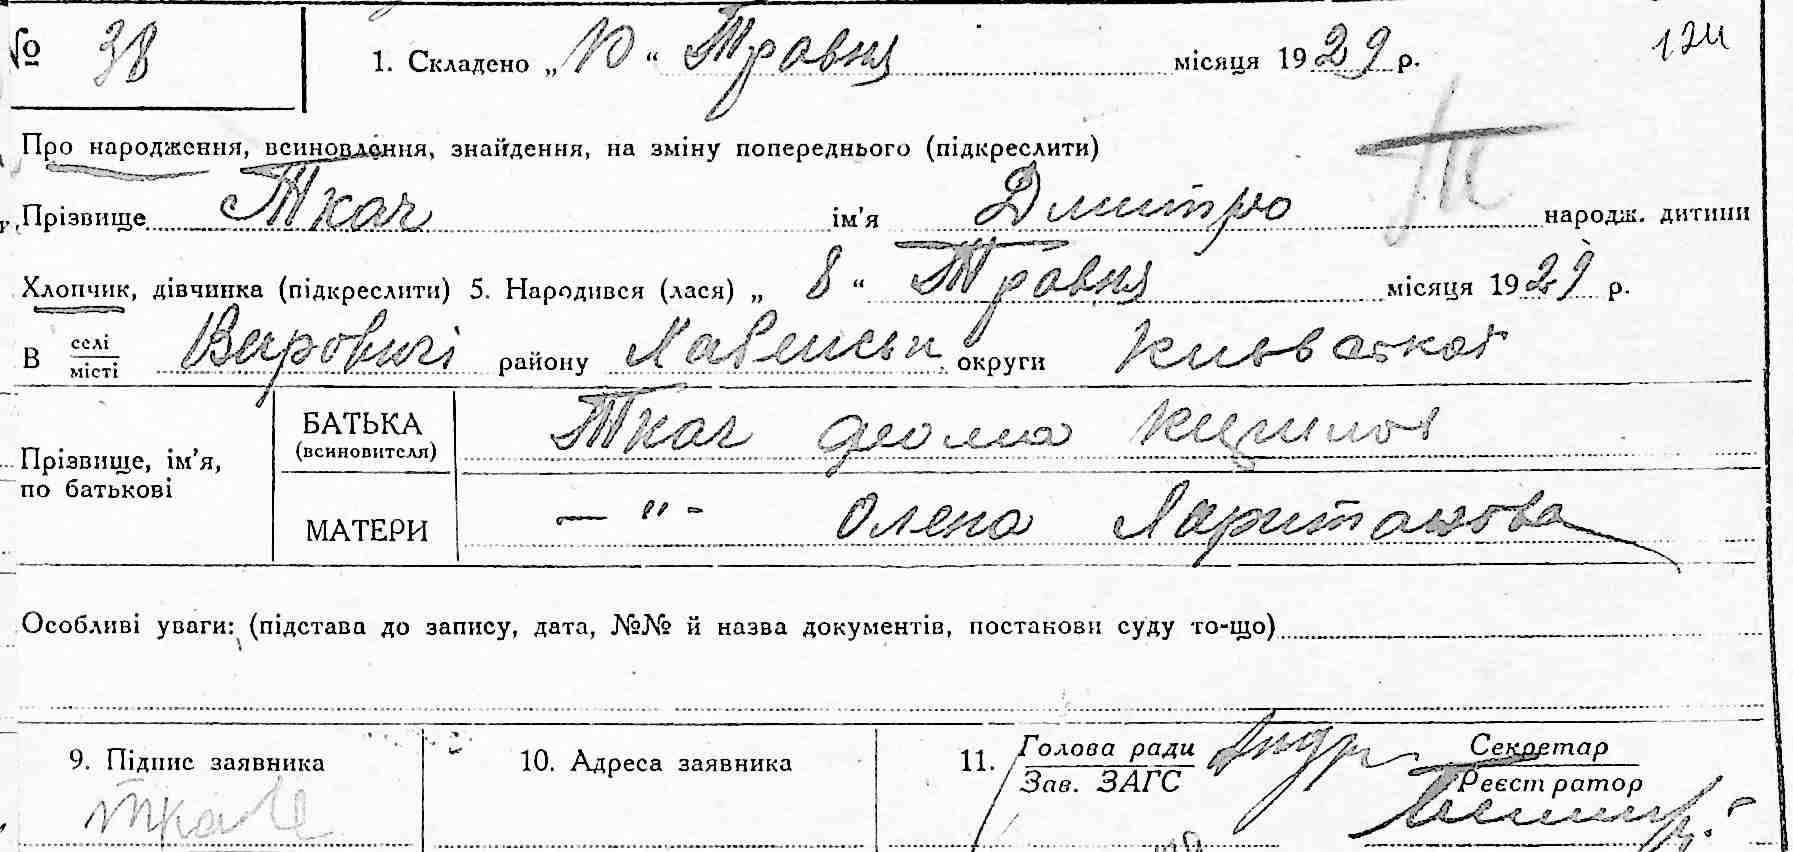 № 38 1. Складено „10“ Травня місяця 1929 р. 124
Про народження, всиновлення, знайдення, на зміну попереднього (підкреслити)
Т
Прізвище Ткач ім'я Дмитро народж. дитини
Хлопчик, дівчинка (підкреслити) 5. Народився (лася) „8“ Травня місяця 1929 р.
В селі/місті району округи
Прізвище, ім'я, по батькові
БАТЬКА (всиновителя) Ткач
МАТЕРИ — " - Олена Харитонова
Особливі уваги: (підстава до запису, дата, №№ й назва документів, постанови суду то-що)
9. Підпис заявника 10. Адреса заявника 11. Голова ради Секретар
Зав. ЗАГС Реєстратор